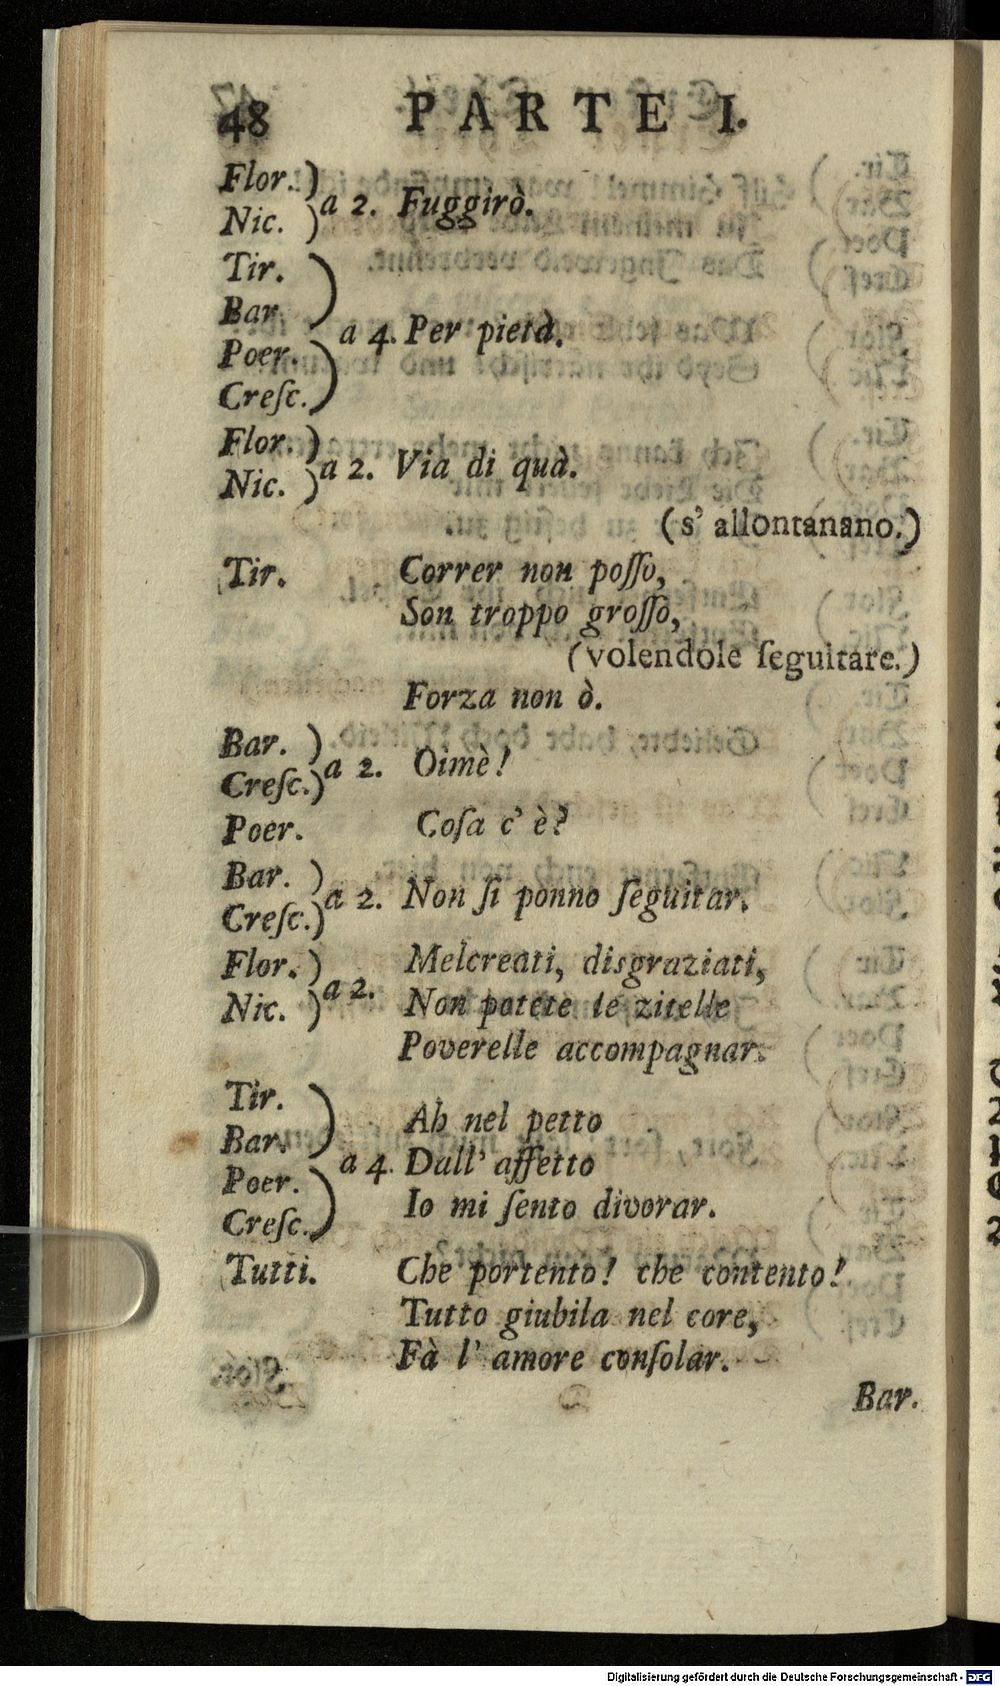 48 PARTE I.
Flor.)
Nic. ) a 2. Fuggirò.
Tir. )
Bar. )
Poer. ) a 4. Per pietà.
Creſc. )
Flor. )
Nic. ) a 2. Via di quà.
(s' allontanano.)
Tir. Correr non poſſo,
Son troppo groſſo,
(volendole ſeguitare.)
Forza non ò.
Bar. )
Creſc.) a 2. Oimè!
Poer. Coſa c' è?
Bar. )
Creſc.) a 2. Non ſi ponno ſeguitar.
Flor. ) Melcreati, disgraziati,
Nic. ) a 2. Non potete le zitelle
Poverelle accompagnar.
Tir. )
Bar. ) Ah nel petto
Poer. ) a 4. Dall' affetto
Creſc. ) Io mi ſento divorar.
Tutti. Che portento! che contento!
Tutto giubila nel core,
Fà l' amore conſolar.
Bar.
Digitalisierung gefördert durch die Deutsche Forschungsgemeinschaft - DFG